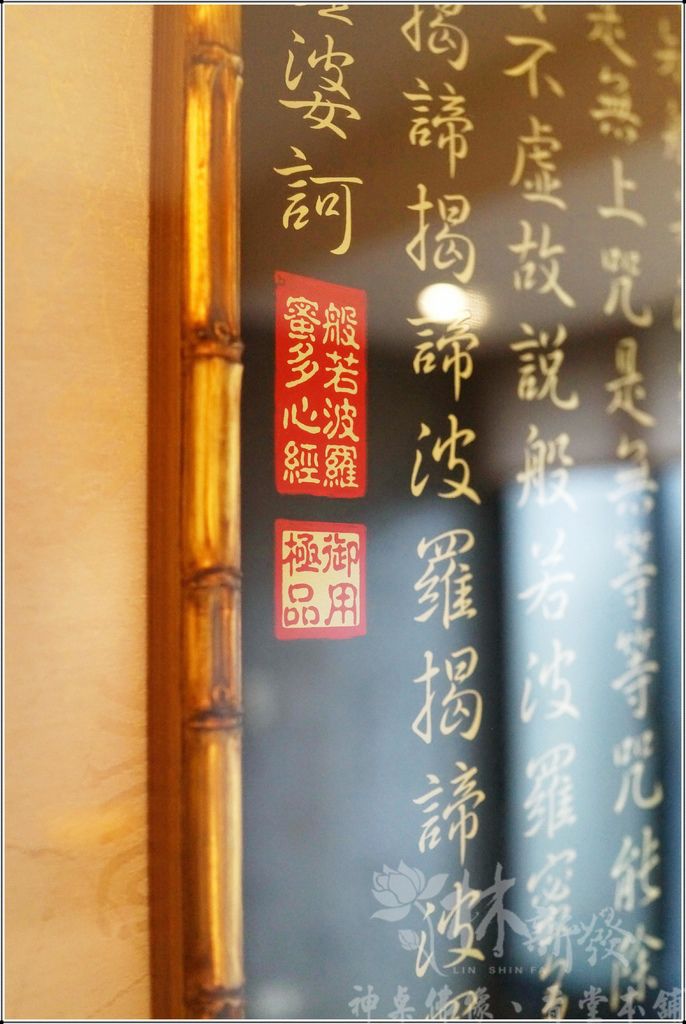 是無上咒是無等等咒能除
不虛故說般若波羅密
揭諦揭諦波羅揭諦波
婆訶
般若波羅
蜜多心經
御用
極品
林新發
LIN SHIN FA
神桌佛像、香堂本舖